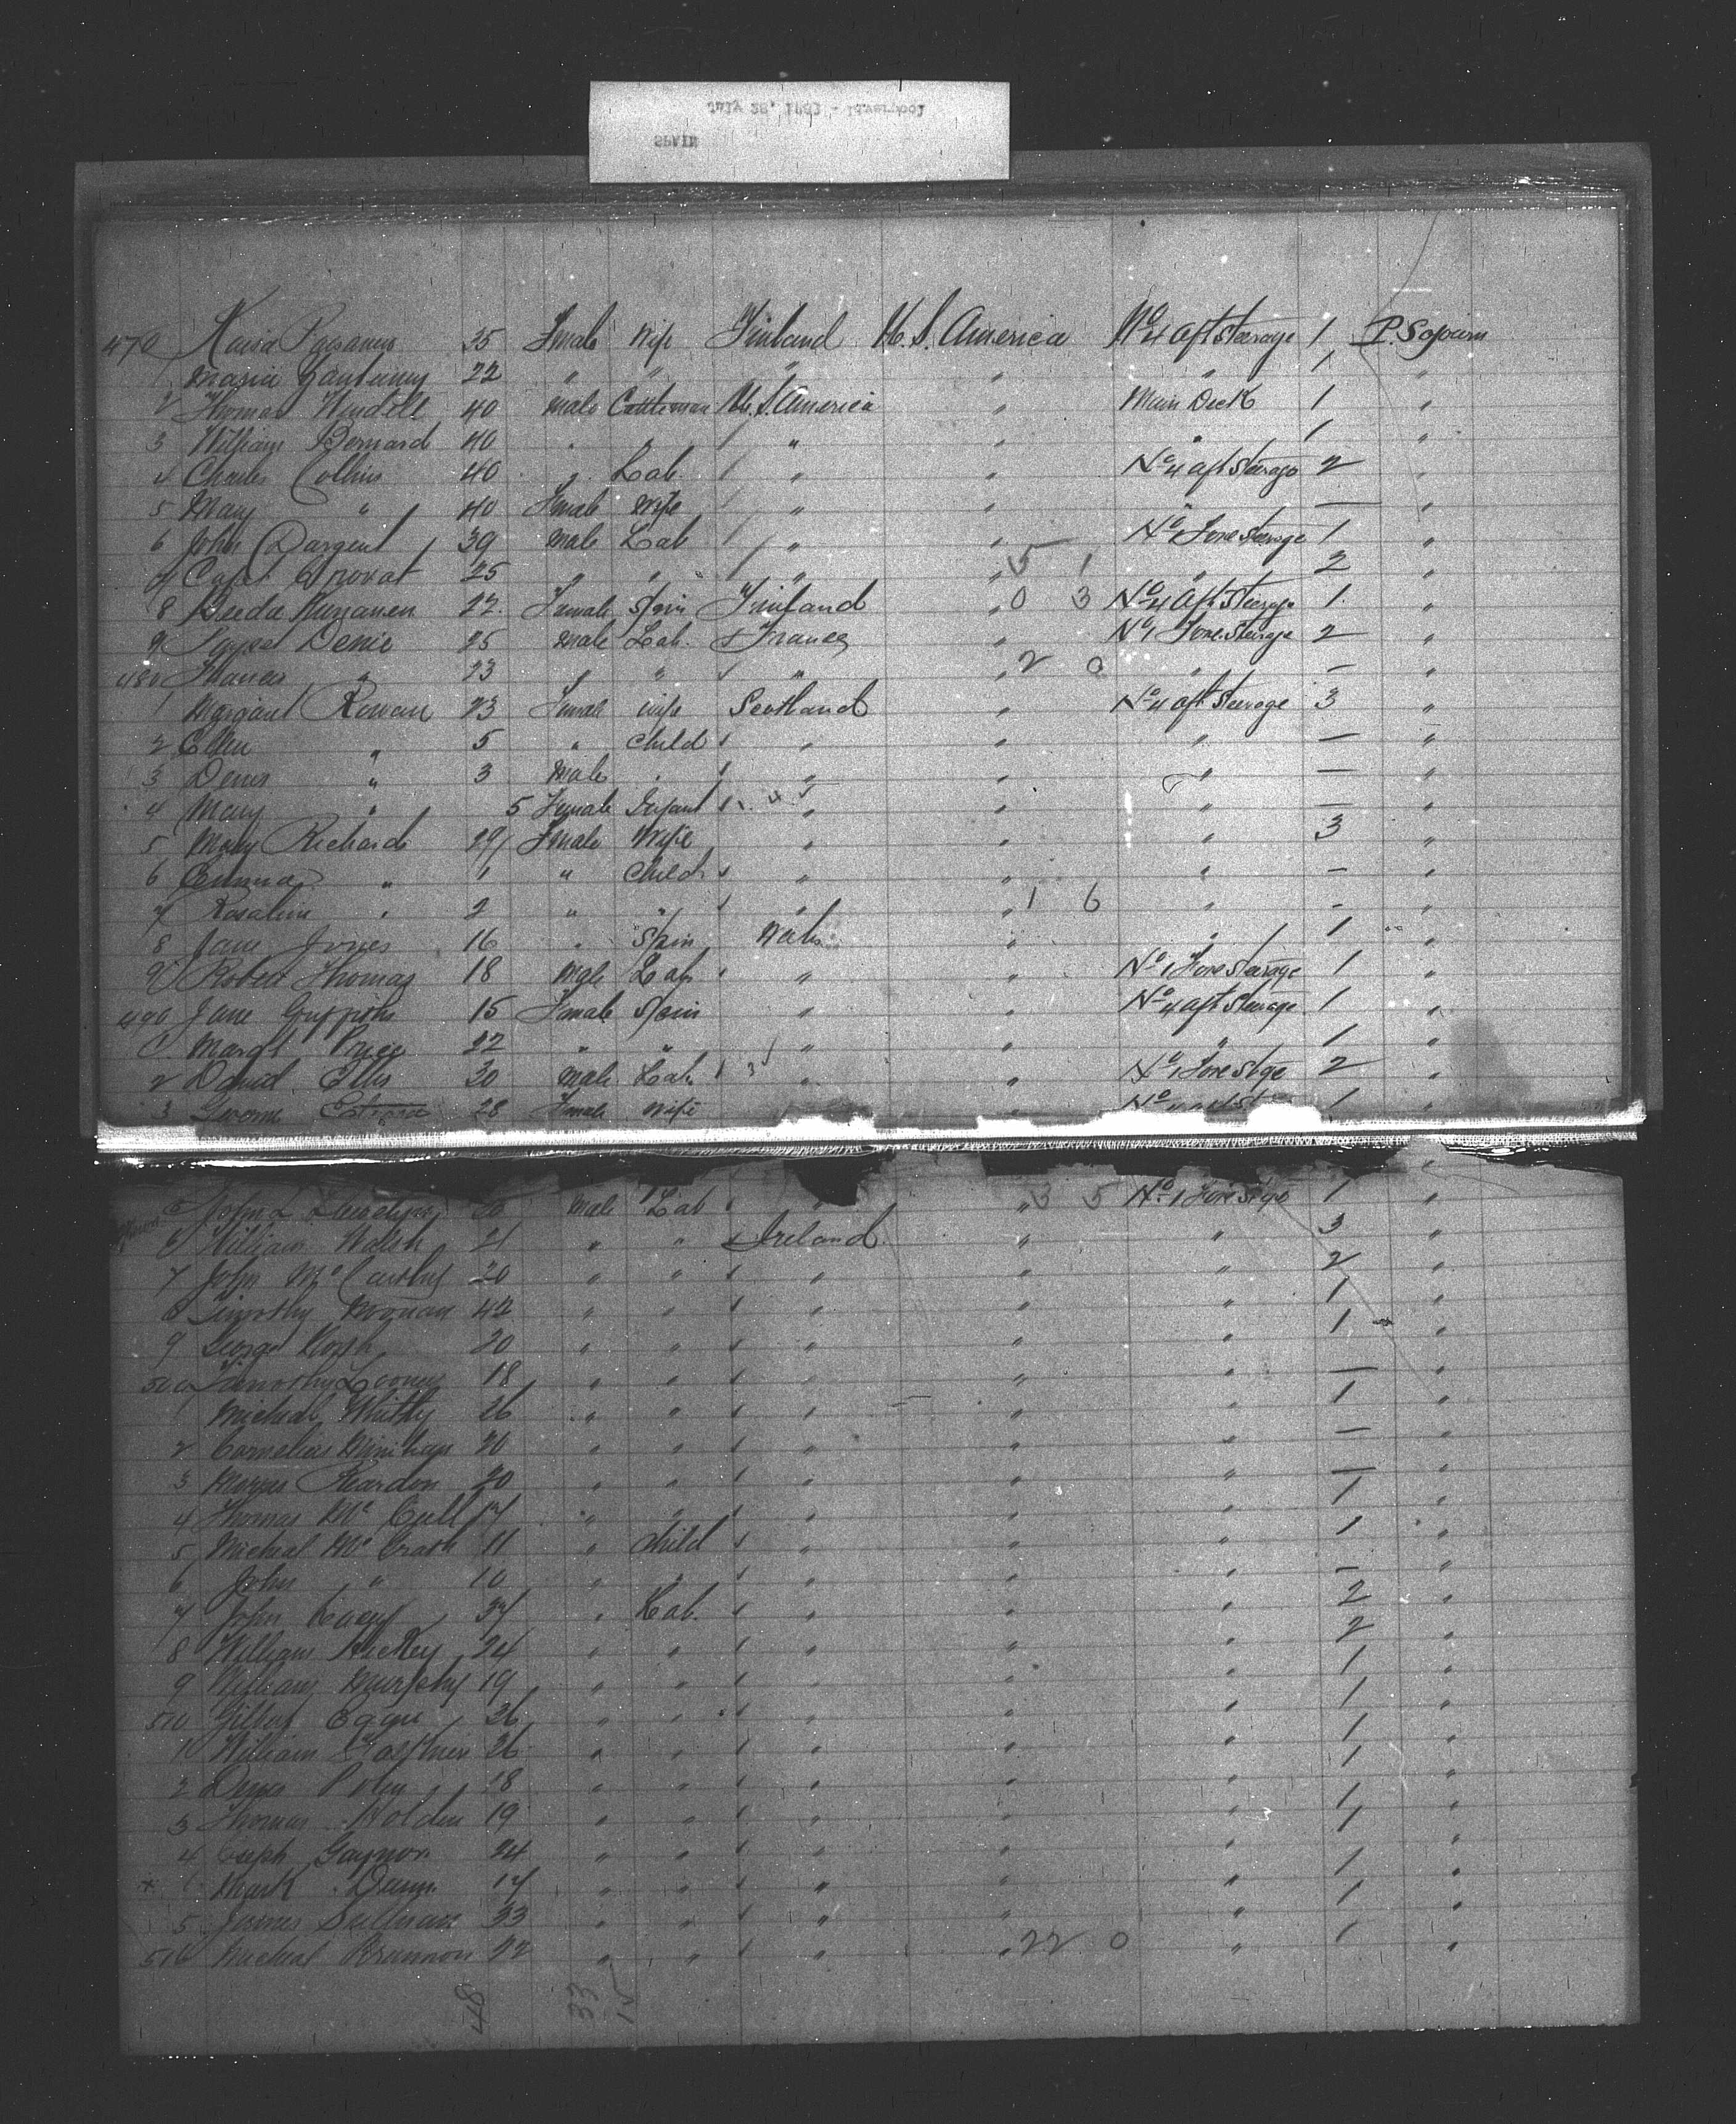 July 28, 1891 - Liverpool
SPAIN
470 Maria 35 Female Wife Finland U.S. America No 4 aft Steerage 1 P. Sojourn
1 Maria 22 " " " " " 1 "
2 Thomas Windell 40 male Cattleman U.S. America " Main Deck 1 "
3 William Bernard 40 " " " " " 1 "
4 Charles Collins 40 " Lab " " No 4 aft Steerage 2 "
5 Mary " 40 Female Wife " " " — "
6 John Dargent 39 male Lab " " No 1 Fore Steerage 1 "
7 25 " " " " 5 1 " 2 "
8 22 Female Spin Finland " 0 3 No 4 aft Steerage 1 "
9 Denie 25 male Lab France " No 1 Fore Steerage 2 "
480 " 23 " " " " 2 0 " — "
1 Margaret Rowan 23 Female wife Scotland " No 4 aft Steerage 3 "
2 Ellen " 5 " Child " " " — "
3 Denis " 3 Male " " " " — "
4 Mary " 5 Female Infant " " " — "
5 Mary Richards 29 Female Wife " " " 3 "
6 Emma " " Child " " " — "
7 Rosaline " 2 " " " " 1 6 " - "
8 Jane Jones 16 " Spin Wales " " 1 "
9 Robert Thomas 18 Male Lab " " No 1 Fore Steerage 1 "
490 Jane Griffiths 15 Female Spin " " No 4 aft Steerage 1 "
1 Margt Price 22 " " " " " 1 "
2 David Ellis 30 male Lab " " No 1 Fore Stge 2 "
3 28 Female Wife " " 1 "
5 John L Male Lab " " 3 5 No 1 Fore Stge 1 "
6 William Walsh 21 " " Ireland " " 3 "
7 John McCarthy 20 " " " " " 2 "
8 Timothy 42 " " " " " 1 "
9 George 20 " " " " " 1 "
500 Timothy Looney 18 " " " " " — "
1 Micheal 26 " " " " " 1 "
2 Cornelius Minihan 20 " " " " " — "
3 Reardon 20 " " " " " — "
4 Thomas 17 " " " " " 1 "
5 Micheal McGrath 11 " Child " " " 1 "
6 John " 10 " " " " " - "
7 John 37 " Lab " " " 2 "
8 William Hickey 24 " " " " " 2 "
9 William Murphy 19 " " " " " 1 "
510 26 " " " " " 1 "
1 William 26 " " " " " 1 "
2 18 " " " " " 1 "
3 Thomas Holden 19 " " " " " 1 "
4 Gaynor 24 " " " " " 1 "
Mark Dunn 17 " " " " " 1 "
5 James Sullivan 33 " " " " " 1 "
516 Micheal Brannon 22 " " " " 22 0 " 1 "
48 33 15